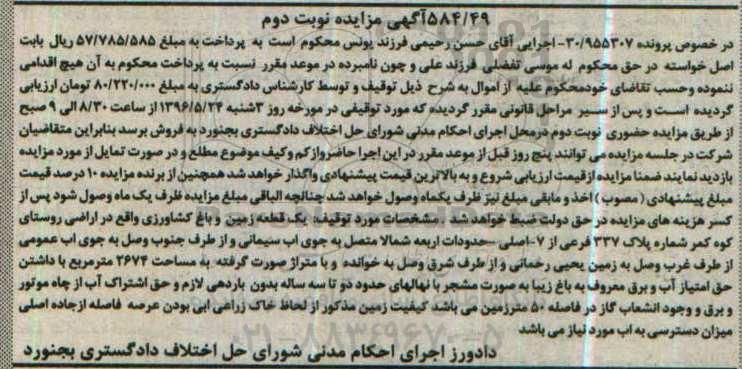 ۵۸۴/۴۹آگهی مزایده نوبت دوم
در خصوص پرونده ۳۰/۹۵۵۳۰۷- اجرایی آقای حسن رحیمی فرزند یونس محکوم است به پرداخت به مبلغ ۵۷/۷۸۵/۵۸۵ ریال بابت
اصل خواسته در حق محکوم له موسی تفضلی فرزند علی و چون نامبرده در موعد مقرر نسبت به پرداخت محکوم به آن هیچ اقدامی
ننموده وحسب تقاضای خودمحکوم علیه از اموال به شرح ذیل توقیف و توسط کارشناس دادگستری به مبلغ ۸۰/۲۲۰/۰۰۰ تومان ارزیابی
گردیده است و پس از سیر مراحل قانونی مقرر گردیده که مورد توقیفی در مورخه روز ۳شنبه ۱۳۹۶/۵/۲۴ از ساعت ۸/۳۰ الی ۹ صبح
از طریق مزایده حضوری نوبت دوم درمحل اجرای احکام مدنی شورای حل اختلاف دادگستری بجنورد به فروش برسد بنابراین متقاضیان
شرکت در جلسه مزایده می توانند پنج روز قبل از موعد مقرر در این اجرا حاضرواز کم وکیف موضوع مطلع و در صورت تمایل از مورد مزایده
بازدید نمایند ضمنا مزایده ازقیمت ارزیابی شروع و به بالاترین قیمت پیشنهادی واگذار خواهد شد همچنین از برنده مزایده ۱۰ درصد قیمت
مبلغ پیشنهادی ( مصوب ) اخذ و مابقی مبلغ نیز ظرف یکماه وصول خواهد شد چنانچه الباقی مبلغ مزایده ظرف یک ماه وصول شود پس از
کسر هزینه های مزایده در حق دولت ضبط خواهد شد . مشخصات مورد توقیف: یک قطعه زمین و باغ کشاورزی واقع در اراضی روستای
کوه کمر شماره پلاک ۳۳۷ فرعی از ۷-اصلی -حدودات اربعه شمالا متصل به جوی اب سیمانی و از طرف جنوب وصل به جوی اب عمومی
از طرف غرب وصل به زمین یحیی رحمانی و از طرف شرق وصل به خوانده و با متراژ صورت گرفته به مساحت ۲۶۷۴ مترمربع با داشتن
حق امتیاز آب و برق معروف به باغ زیبا به صورت مشجر با نهالهای حدود دو تا سه ساله بدون باردهی لازم و حق اشتراک آب از چاه موتور
و برق و وجود انشعاب گاز در فاصله ۵۰ مترزمین می باشد کیفیت زمین مذکور از لحاظ خاک زراعی ابی بودن عرصه فاصله ازجاده اصلی
میزان دسترسی به اب مورد نیاز می باشد
دادورز اجرای احکام مدنی شورای حل اختلاف دادگستری بجنورد
۰۲۱-۸۸۳۴۹۶۷۰-۵